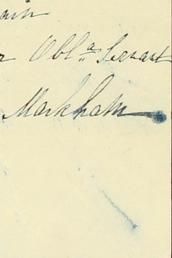 r Obl.a Servant
Markham